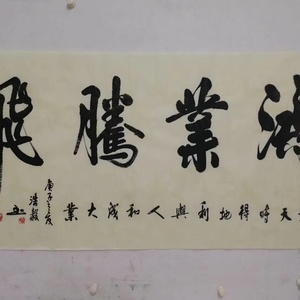 鴻業騰飛
天時得地利與人和成大業
庚子之夏
浩毅
書